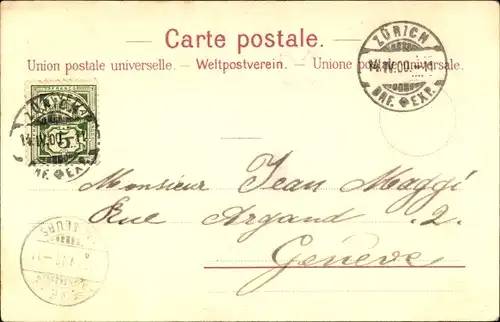 Carte postale.
Union postale universelle. – Weltpostverein. – Unione postale universale.
ZÜRICH
14.IV.00.–11
BRF. EXP.
5
14.IV.00
BRF. EXP.
Monsieur Jean Maggi
Rue Argand .2.
Genève